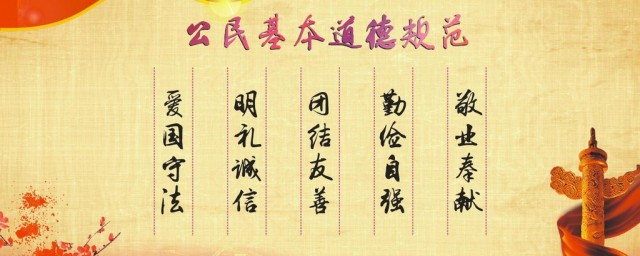 公民基本道德规范
爱国守法
明礼诚信
团结友善
勤俭自强
敬业奉献